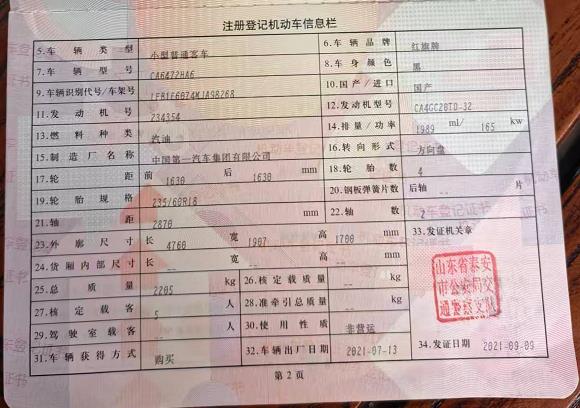 注册登记机动车信息栏
5.车辆类型 小型普通客车 6.车辆品牌 红旗牌
7.车辆型号 CA6472HA6 8.车身颜色 黑
9.车辆识别代号/车架号 LFB1E6074MJA98268 10.国产/进口 国产
11.发动机号 234354 12.发动机型号 CA4GC20TD-32
13.燃料种类 汽油 14.排量/功率 1989 ml/ 165 kw
15.制造厂名称 中国第一汽车集团有限公司 16.转向形式 方向盘
17.轮距 前 1630 后 1630 mm 18.轮胎数 4
19.轮胎规格 235/60R18 20.钢板弹簧片数 后轴 -- 片
21.轴距 2870 mm 22.轴数 2
23.外廓尺寸 长 4760 宽 1907 高 1700 mm 33.发证机关章
24.货厢内部尺寸 长 -- 宽 -- 高 -- mm
25.总质量 2205 kg 26.核定载质量 -- kg
27.核定载客 5 人 28.准牵引总质量 -- kg
29.驾驶室载客 -- 人 30.使用性质 非营运
31.车辆获得方式 购买 32.车辆出厂日期 2021-07-13 34.发证日期 2021-09-09
山东省泰安
市公安局交
通警察支队
第2页